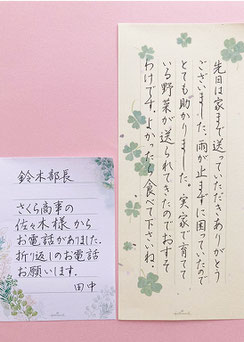 鈴木部長
さくら商事の
佐々木様から
お電話がありました。
折り返しのお電話
お願いします。
田中
先日は家まで送っていただきありがとう
ございました。雨が止まずに困っていたので
とても助かりました。実家で育てて
いる野菜が送られてきたのでおすそ
わけです。よかったら食べて下さいね。